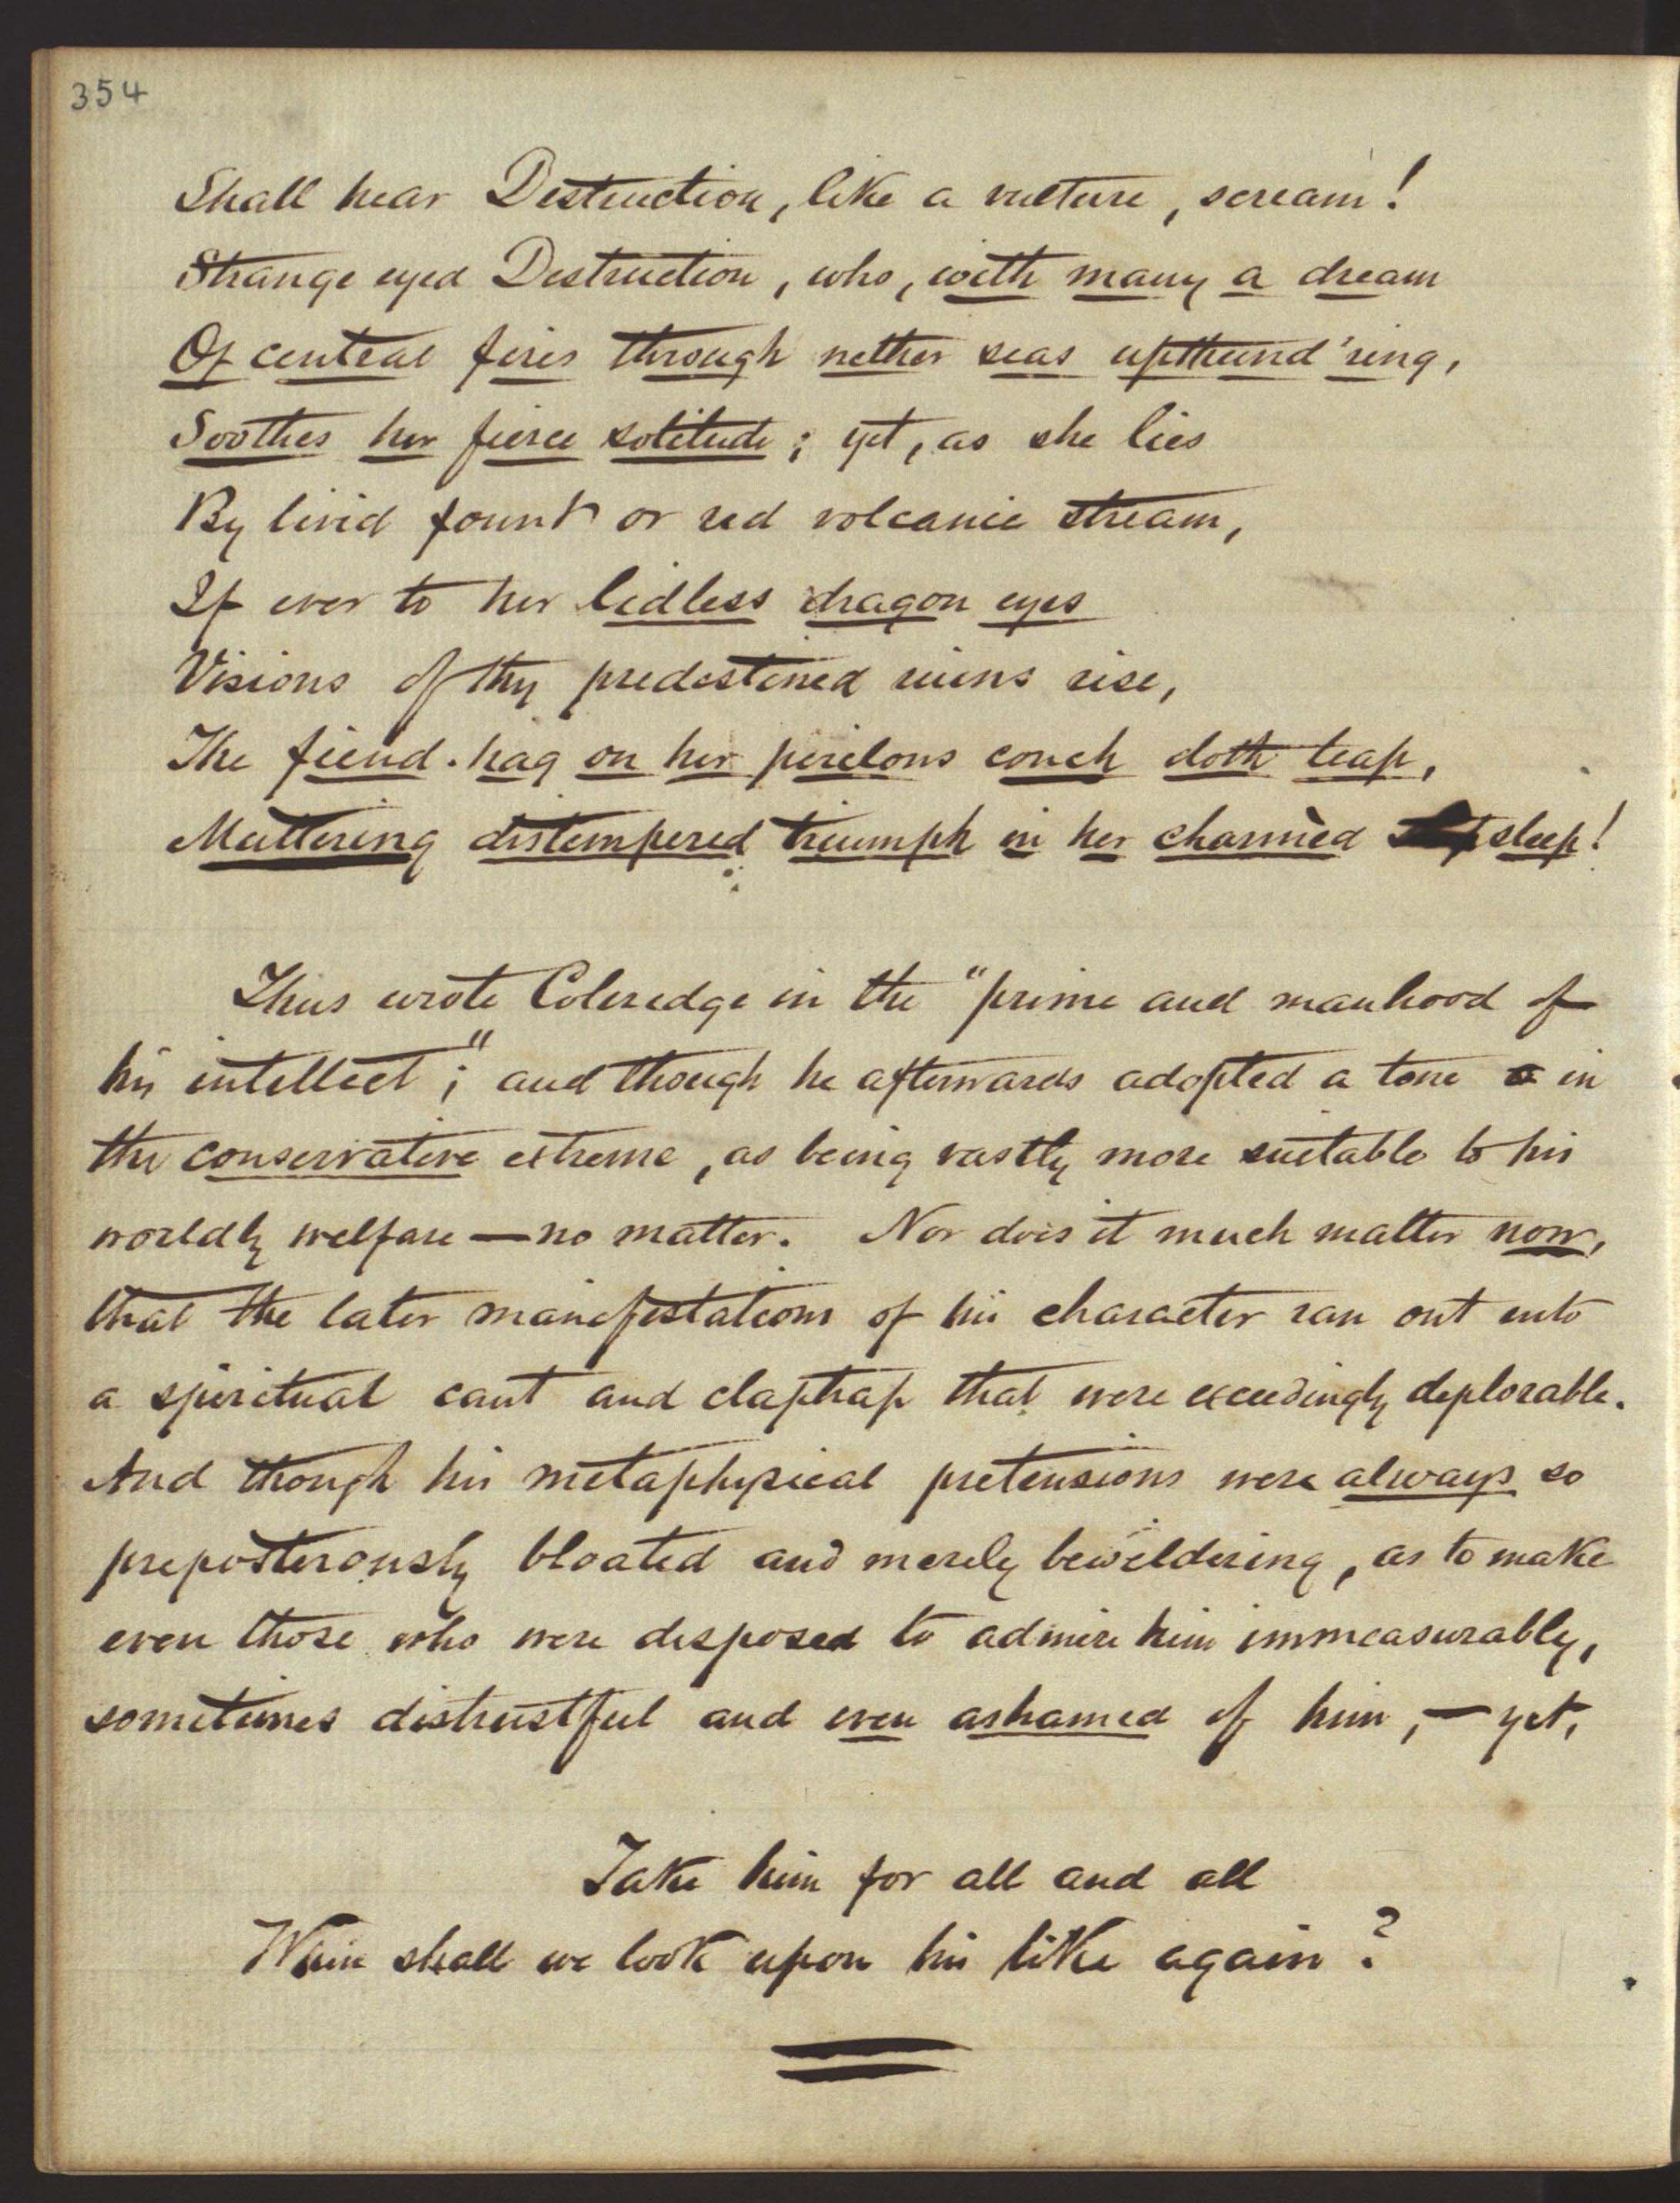 354
Shall hear Destruction, like a vulture, scream!
Strange eyed Destruction, who, with many a dream
Of central fires through nether seas upthund'ring,
Soothes her fierce solitude; yet, as she lies
By livid fount or red volcanic stream,
If ever to her lidless dragon eyes
Visions of thy predestined ruins rise,
The fiend-hag on her perilous couch doth leap,
Muttering distempered triumph in her charmèd sleep!
Thus wrote Coleredge in the "prime and manhood of
his intellect;" and though he afterwards adopted a tone in
the conservative extreme, as being vastly more suitable to his
worldly welfare — no matter. Nor does it much matter now,
that the later manifestations of his character ran out into
a spiritual cant and claptrap that were exceedingly deplorable.
And though his metaphysical pretensions were always so
preposterously bloated and merely bewildering, as to make
even those who were disposed to admire him immeasurably,
sometimes distrustful and even ashamed of him, — yet,
Take him for all and all
When shall we look upon his like again?